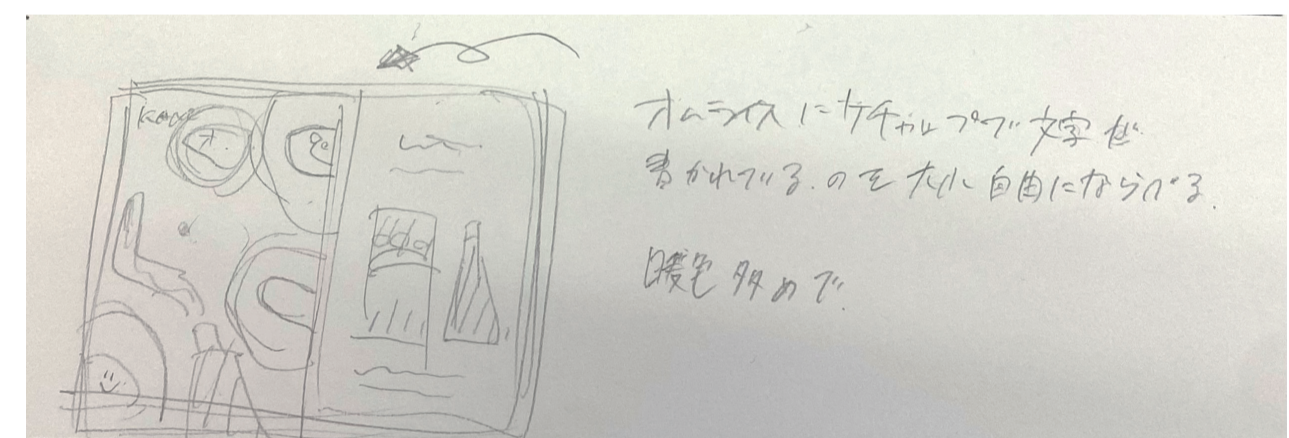 オムライスにケチャップで文字が
書かれているのを大小自由にならべる.
暖色多めで.